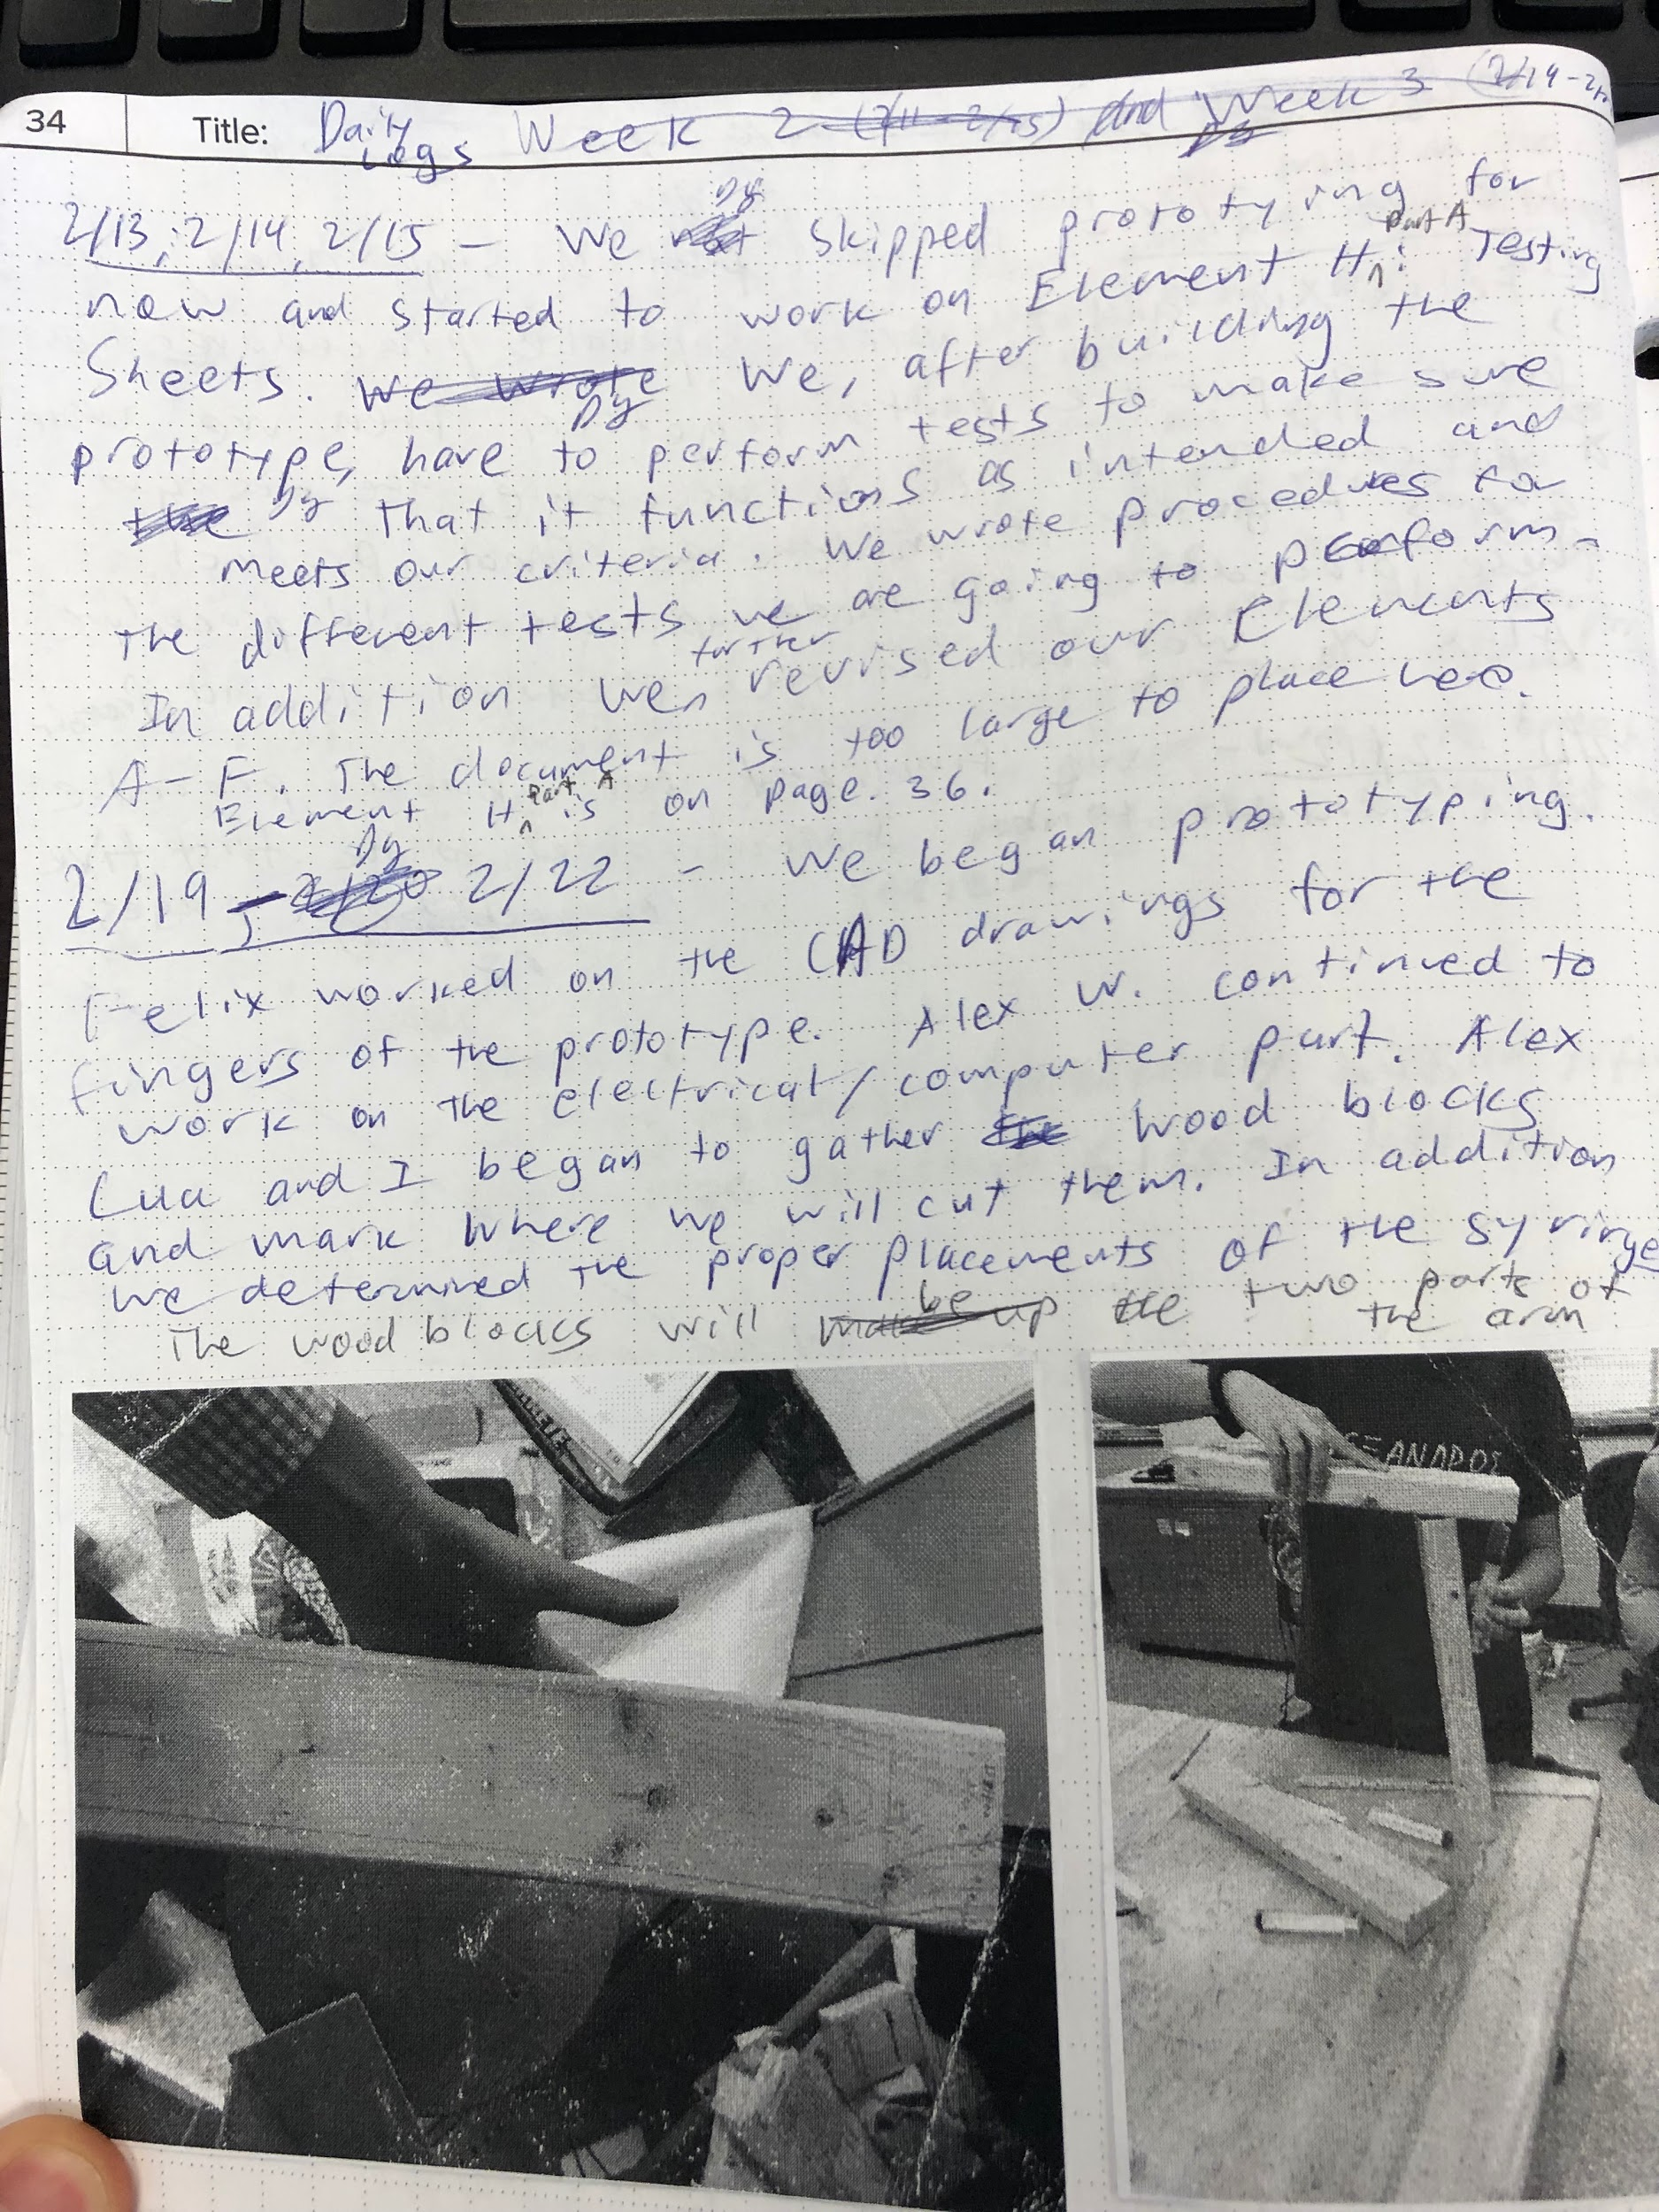 34
Title: Daily Logs Week 2 (2/11 - 2/15) and Week 3 (2/19 -
DY
DY
2/13, 2/14, 2/15 - We skipped prototying for
part A
now and started to work on Element H: Testing
Sheets. We wrote We, after building the
DY
prototype, have to perform tests to make sure
the DY that it functions as intended and
meets our criteria. We wrote procedures for
the different tests we are going to perform.
further
In addition we revised our Elements
A-F. The document is too large to place here.
Part A
Element H is on page. 36.
DY
2/19, 2/20 2/22 - We began prototyping.
Felix worked on the CAD drawings for the
fingers of the prototype. Alex W. continued to
work on the electrical/computer part. Alex
Luu and I began to gather the wood blocks
and mark where we will cut them. In addition
we determined the proper placements of the syringe
be
The wood blocks will make up the two parts of
the arm
ANAPOS